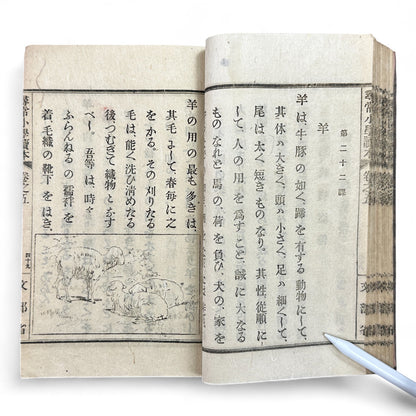 尋常小學讀本 卷之五
文部省
第二十二課
羊
羊は、牛豚の如く、蹄を有する動物にして、
其体は大きく、頭は小さく、足は細くして、
尾は太く、短きものなり。其性從順に
して、人の用を爲すこと、誠に大なる
ものなれど、馬の、荷を負ひ、犬の、家を
羊の用の最も多きは、
其毛にして、春每に之
をかる。その刈りたる
毛は、能く洗ひ淸めたる
後、つむぎて織物となす
べし。吾等は、時々
ふらんねるの襦袢を
着、毛織の靴下をはき、
尋常小學讀本 卷之五
四十九
文部省